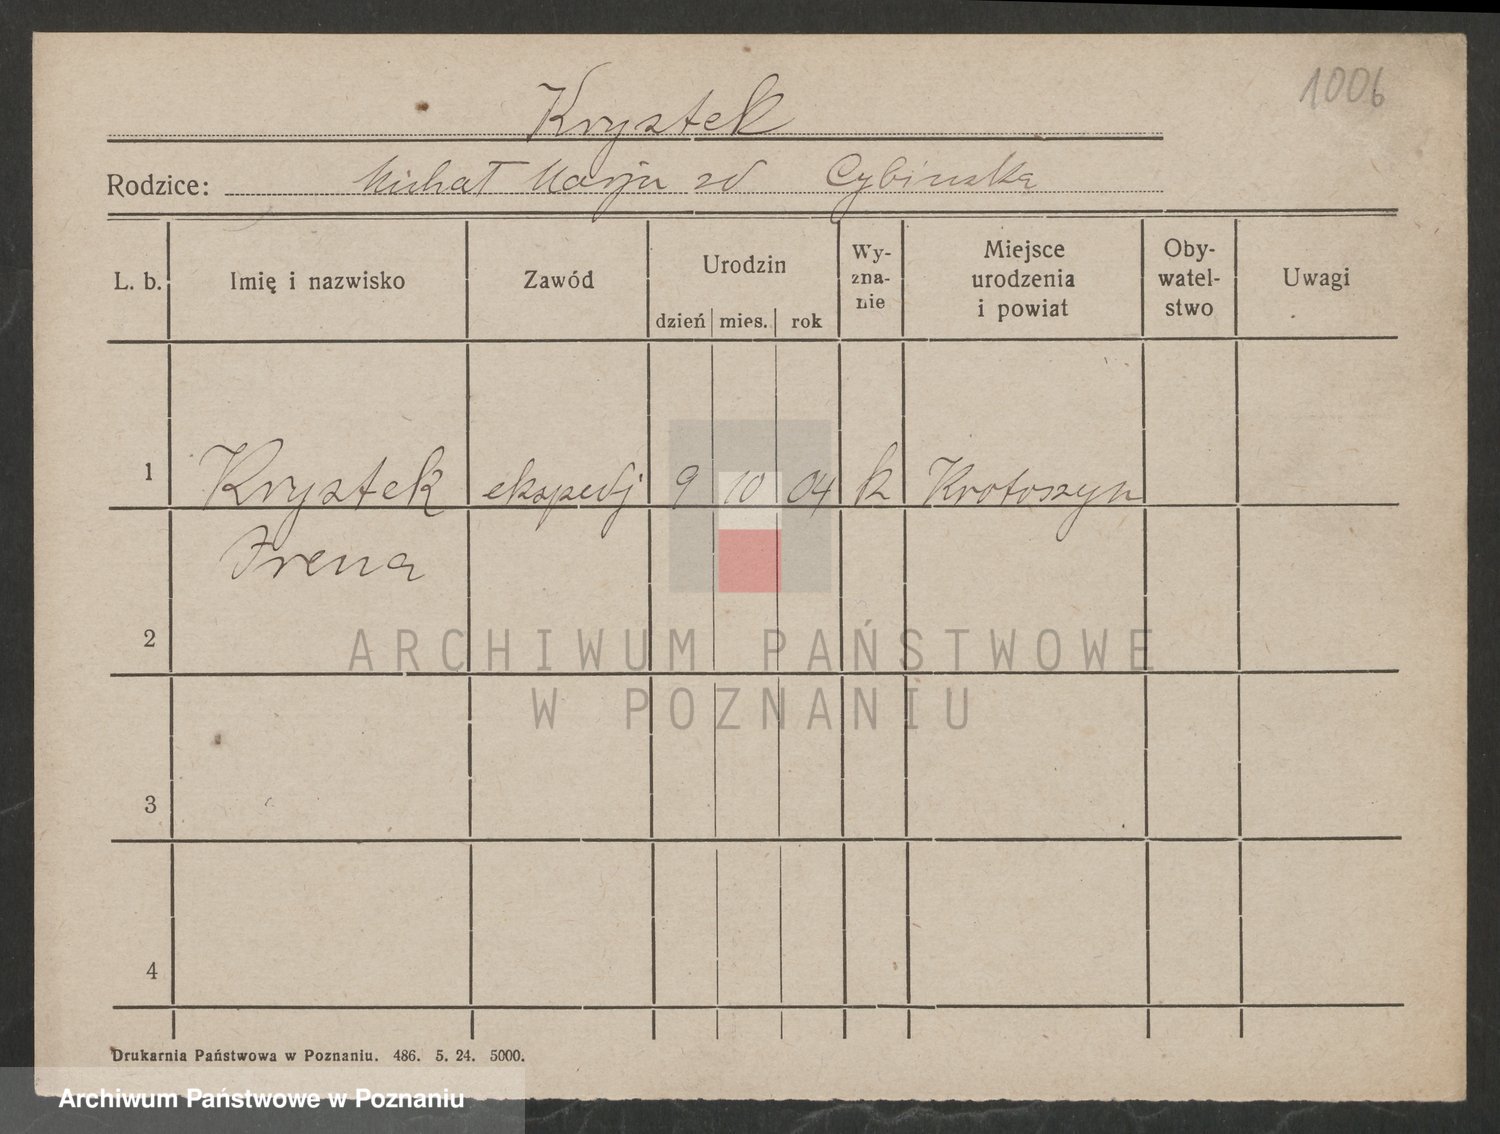 1006
Krystek
Rodzice: Michał Marja zd Cybinska
L. b.
Imię i nazwisko
Zawód
Urodzin
dzień mies. rok
Wy-
zna-
nie
Miejsce
urodzenia
i powiat
Oby-
watel-
stwo
Uwagi
1 Krystek ekspedj 9 10 04 k Krotoszyn
Irena
2
ARCHIWUM PAŃSTWOWE
W POZNANIU
3
4
Drukarnia Państwowa w Poznaniu. 486. 5. 24. 5000.
Archiwum Państwowe w Poznaniu